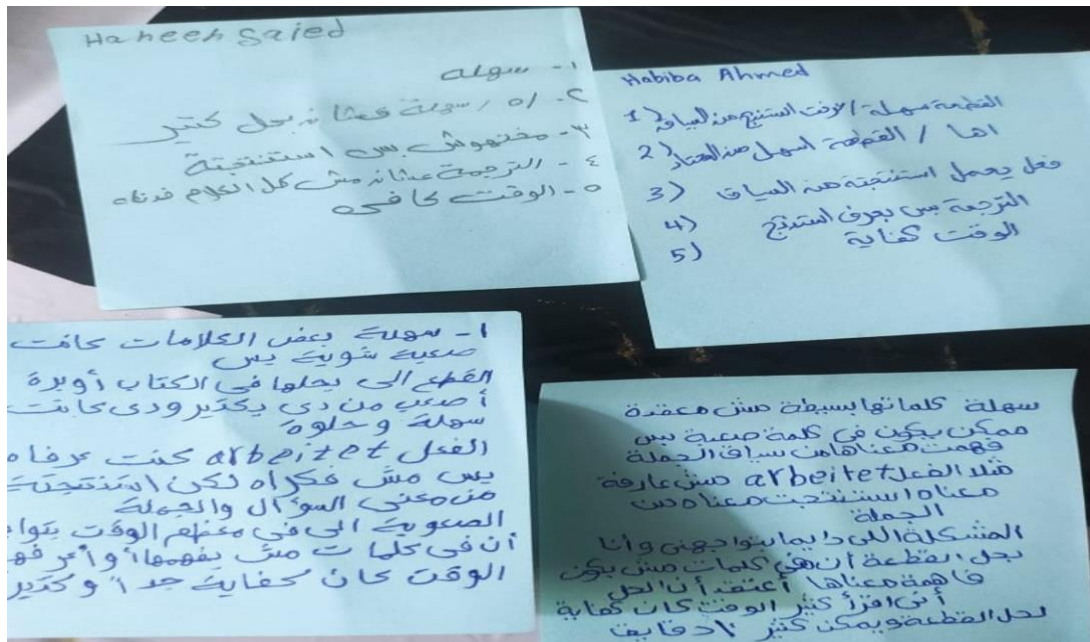 Haneen Saied
١- سهلة
٢- اه / سهلة عشانه بحل كتير
٣- مفهموش بس استنتجتة
٤- الترجمة عشانه مش كل الكلام
٥- الوقت كافى
Habiba Ahmed
1) القطعة سهلة / عرفت استنتج من السياق
2) اها / القطعة اسهل من المعتاد
3) فعل يعمل استنتجتة من السياق
4) الترجمة بس بعرف استنتج
5) الوقت كفاية
١- سهلة بعض الكلامات كانت
صعبة شوية بس
القطع الى بحلها فى الكتاب أوبرة
أصعب من دي بكتير ودى كانت
سهلة وحلوة
الفعل arbeitet كنت عرفاه
بس مش فكراه لكن استنتجتة
من معنى السؤال والجملة
الصعوبة الى فى معظم الوقت
أن فى كلمات مش بفهمها أو أعرفها
الوقت كان كفاية جدا وكتير
سهلة كلماتها بسيطة مش معقدة
ممكن يكون فى كلمة صعبة بس
فهمت معناها من سياق الجملة
مثلا الفعل arbeitet مش عارفة
معناه استنتجت معناه من
الجملة
المشكلة اللى دايما بتواجهنى وأنا
بحل القطعة أن فى كلمات مش بكون
فاهمة معناها أعتقد أن الحل
أنى اقرأ كتير الوقت كان كفاية
لحل القطعة ويمكن كتير ١٠ دقايق